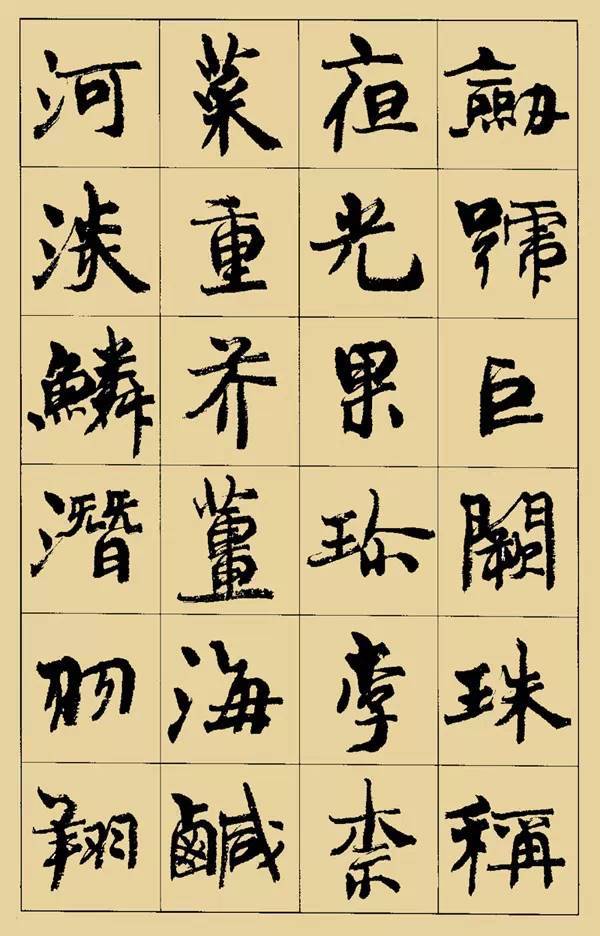 劒號巨闕珠稱
夜光果珍李柰
菜重芥薑海鹹
河淡鱗潛羽翔